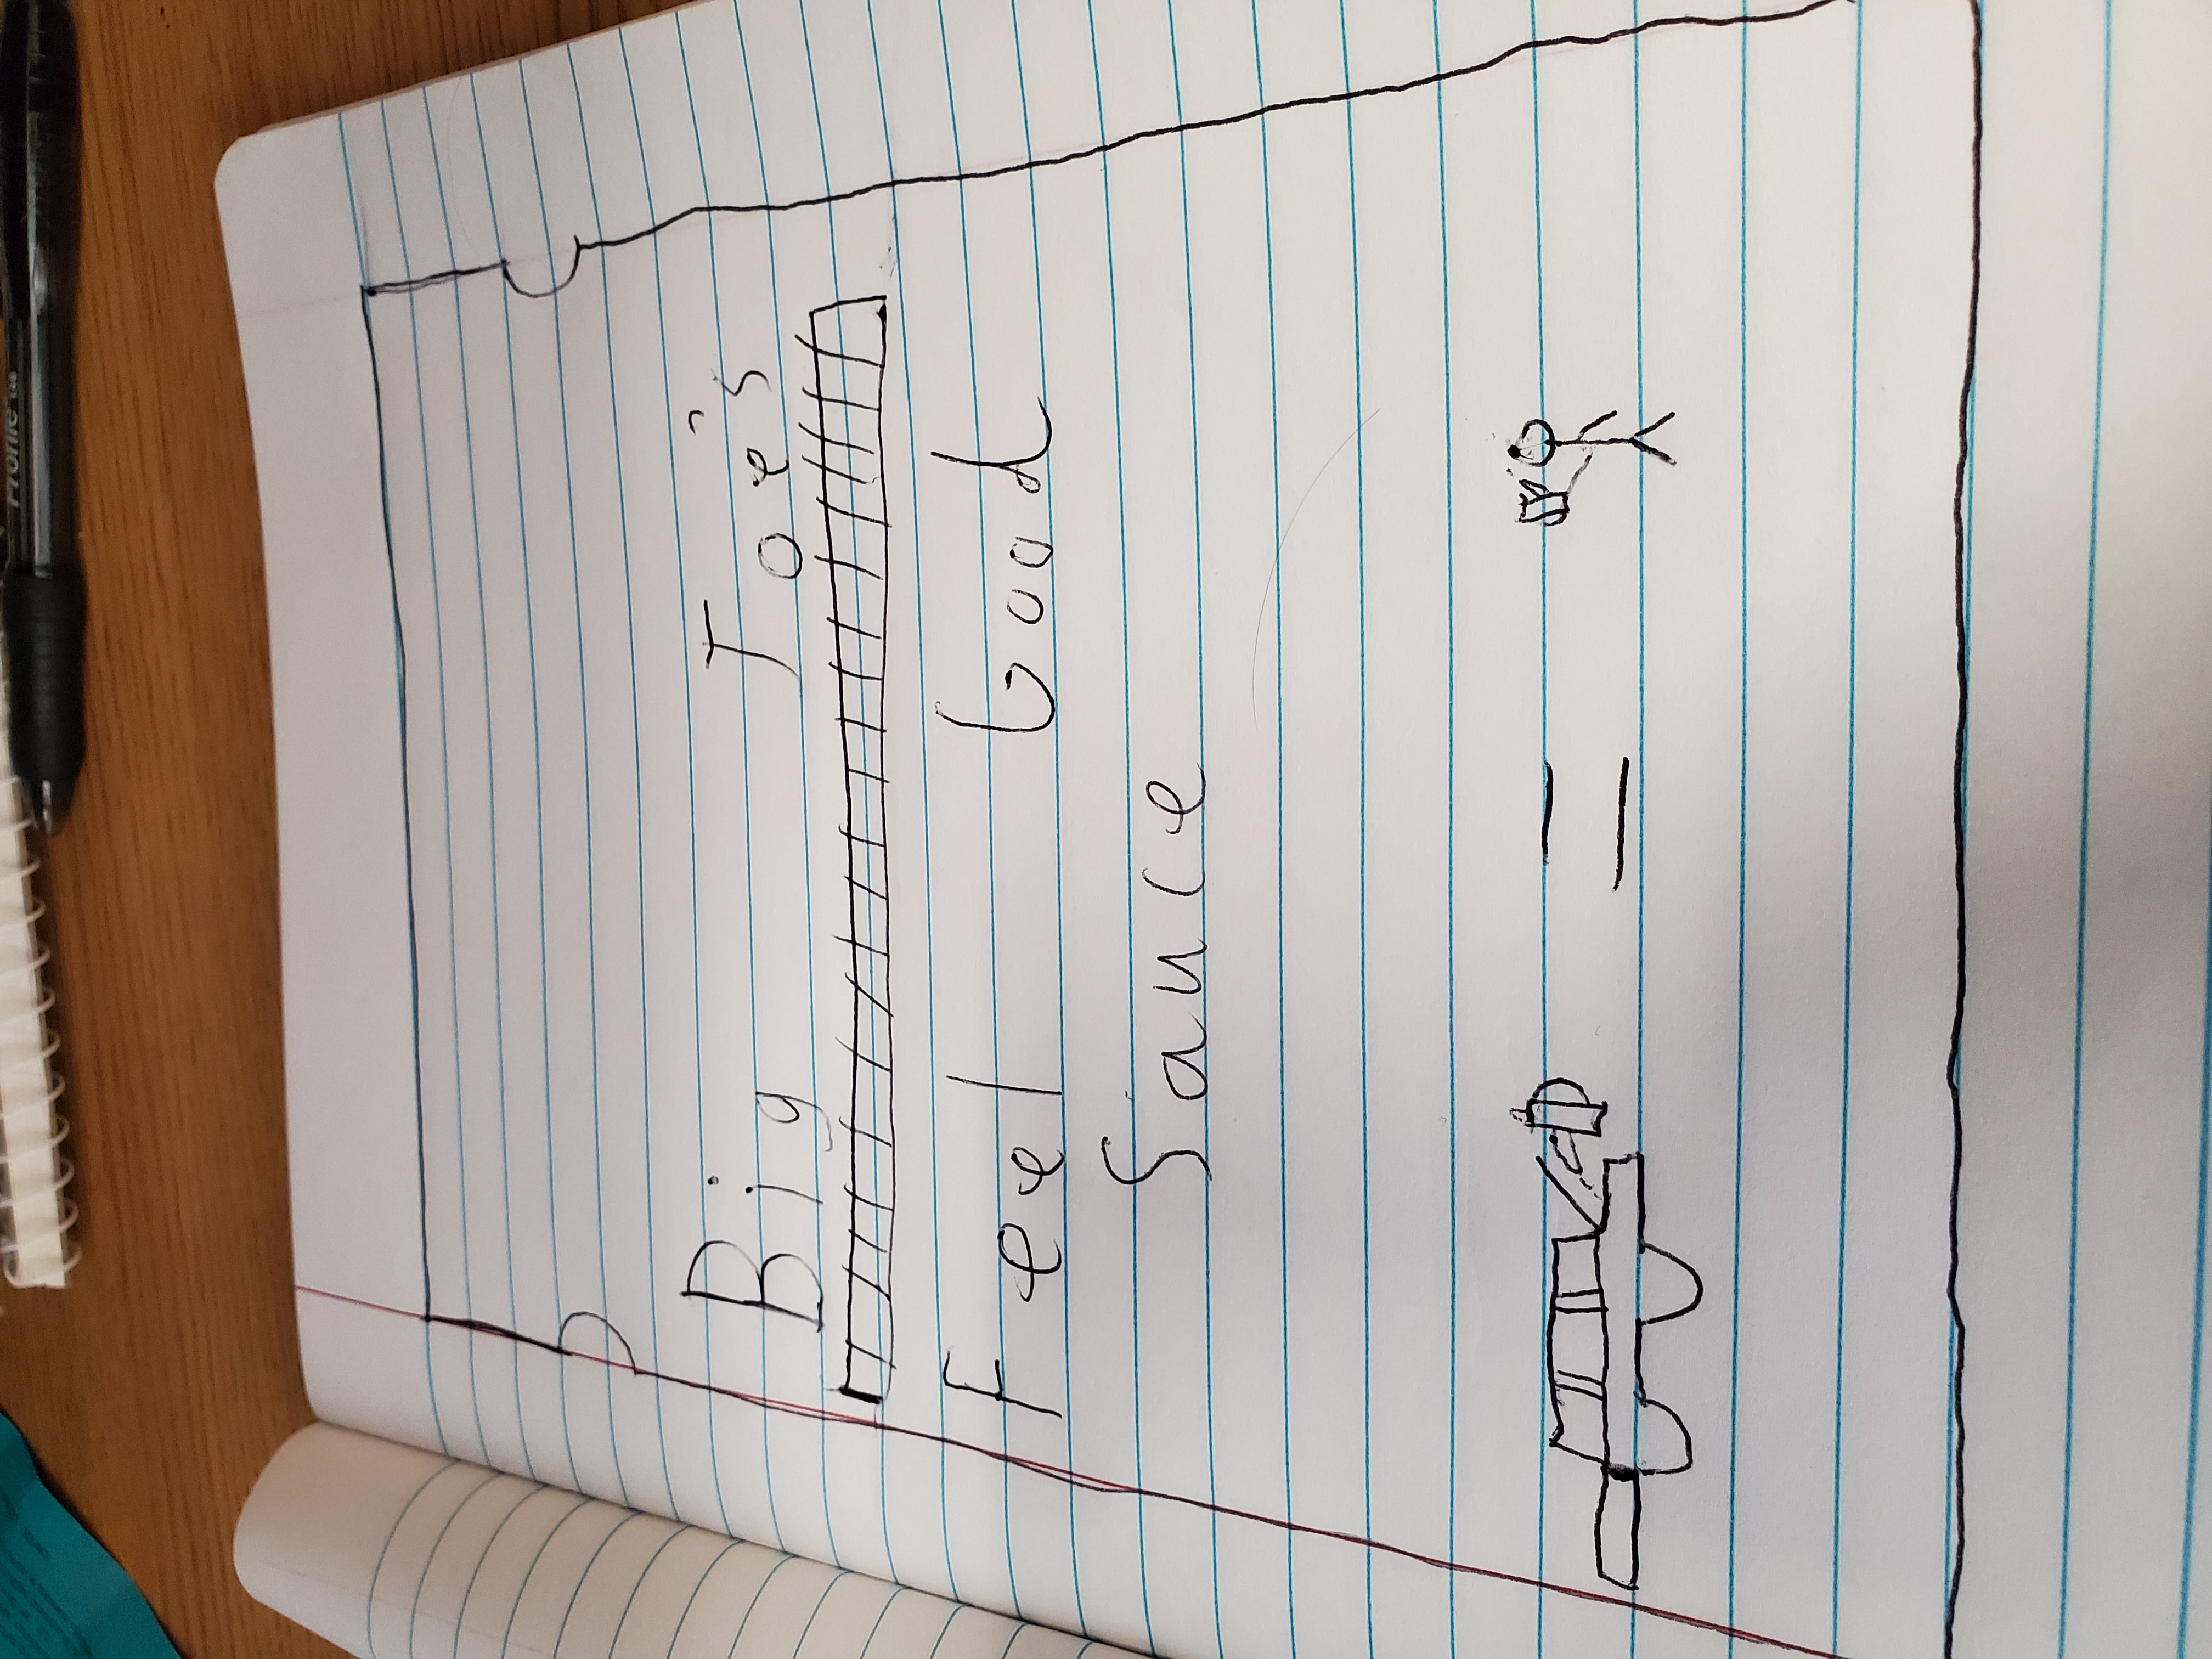 Profile
Big Joe's
Feel Good
Sauce